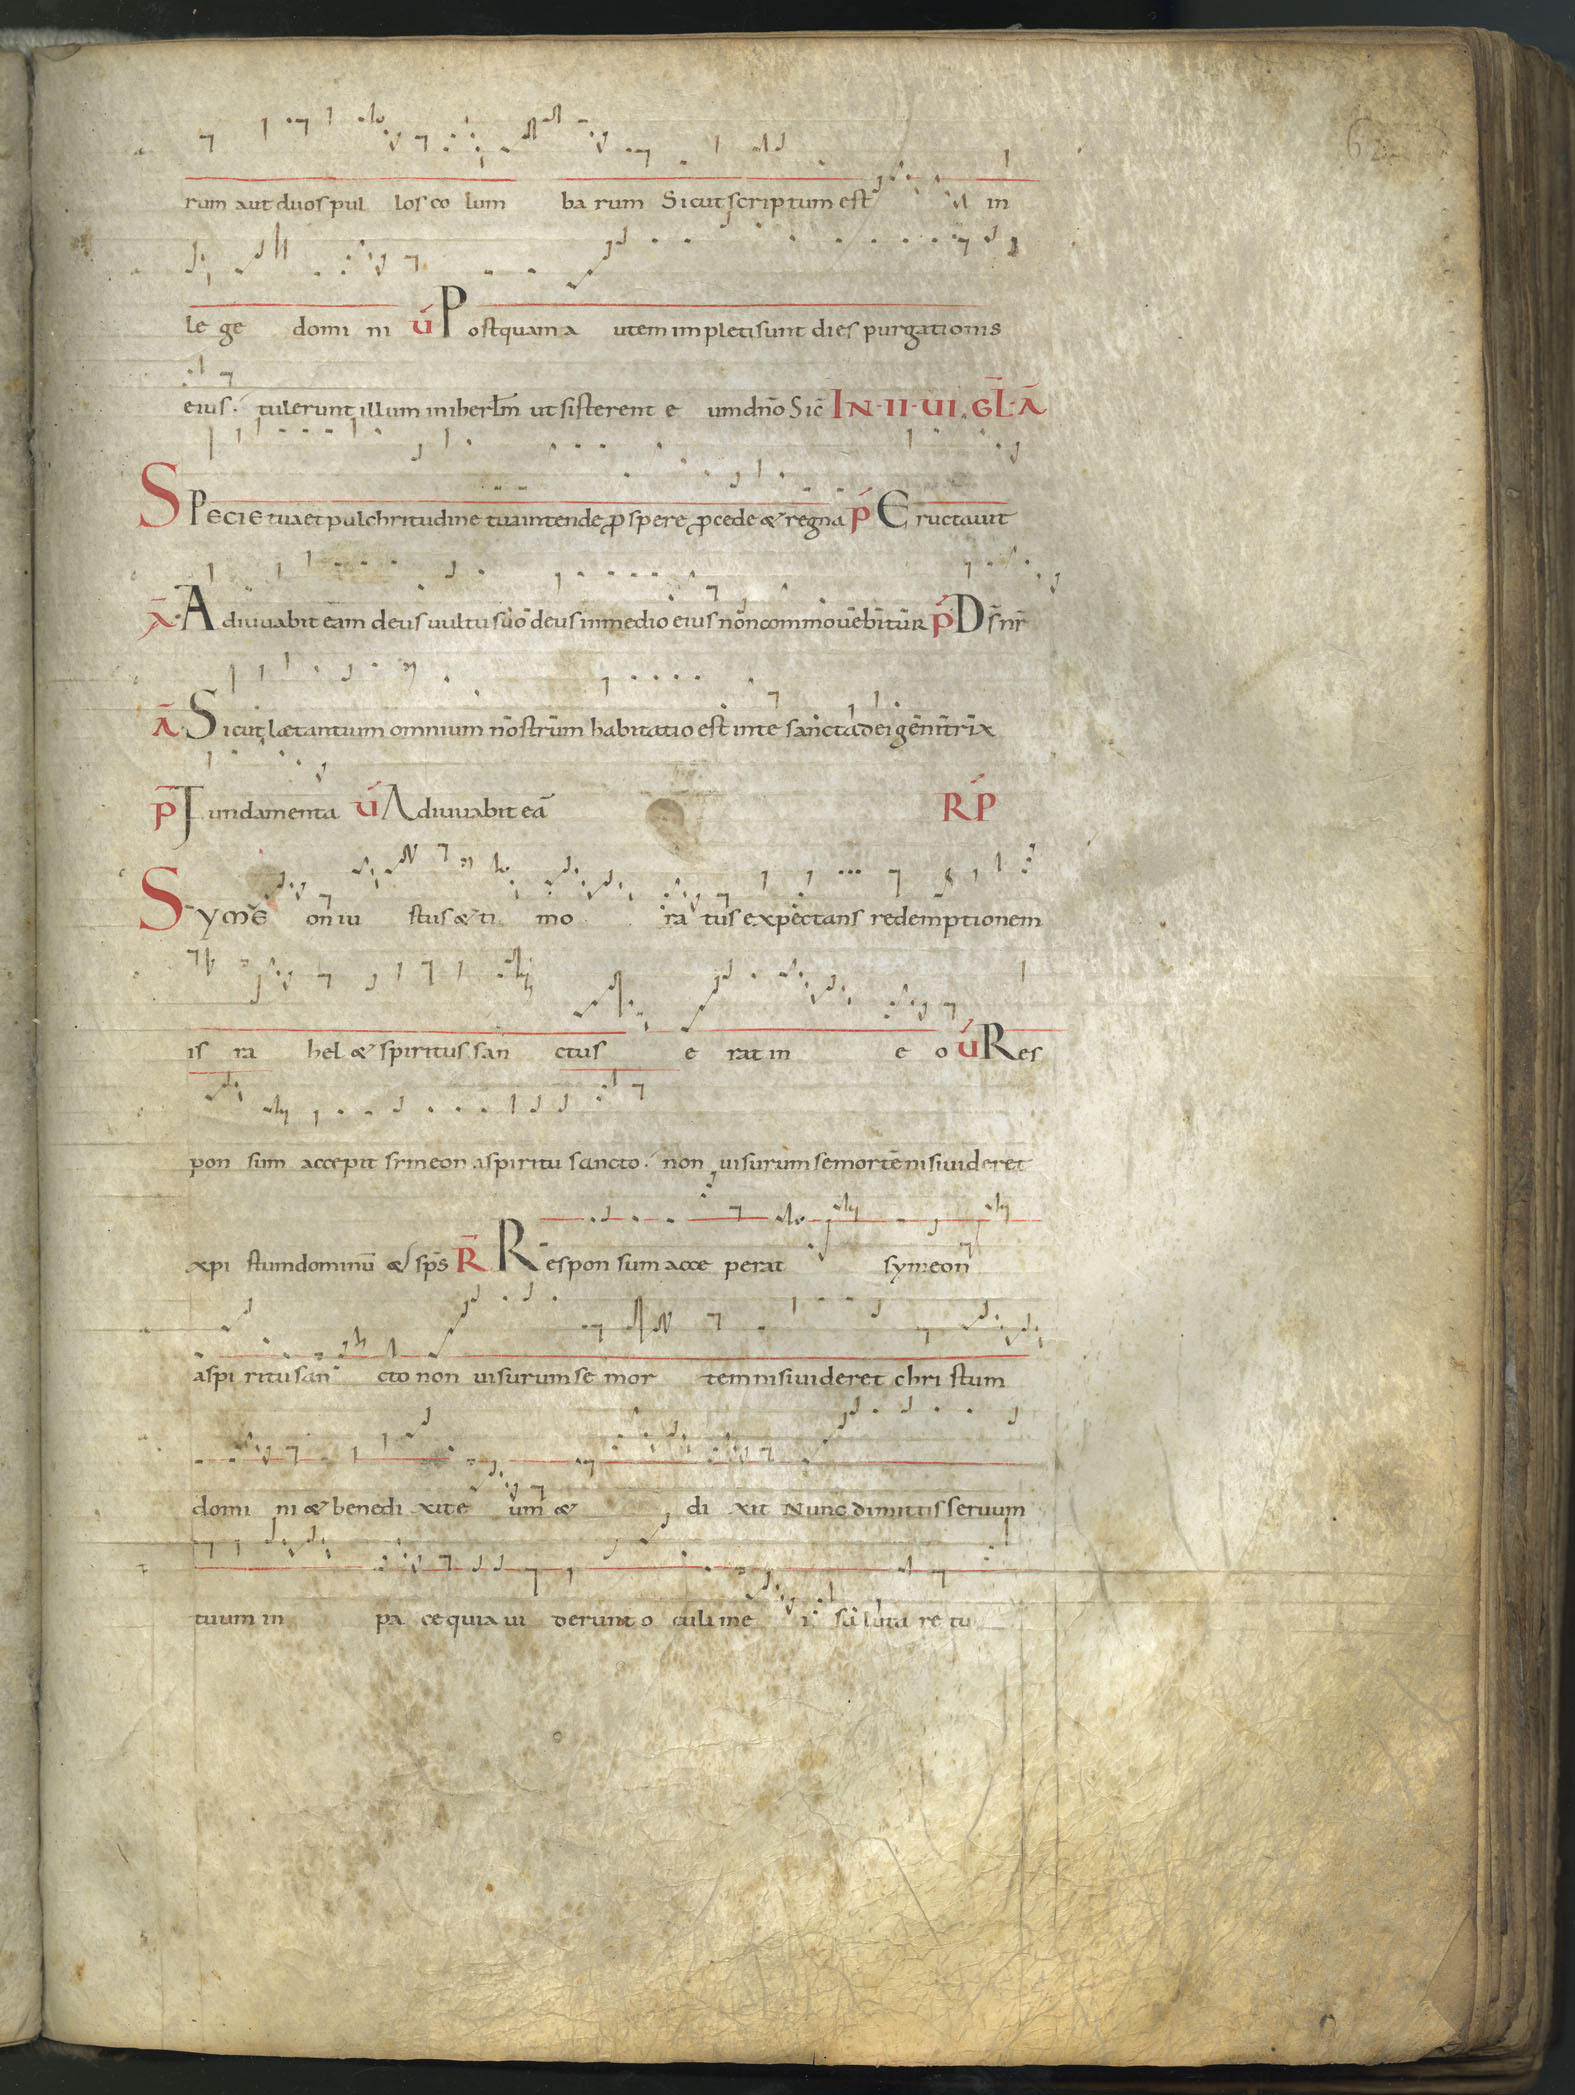 62
rum aut duos pul los co lum ba rum Sicut scriptum est in
le ge domi ni V́ Postquam a utem impleti sunt dies purgationis
eius. tulerunt illum in iherl̄m ut sisterent e um dn̄o Sic̄ IN · II · UI · GL̄ · Ā
SPECIE tua et pulchritudine tua intende ꝓspere ꝓcede & regna P̄ Eructauit
Ā Adiuuabit eam deus uultu suo deus in medio eius non commouebitur P̄ D̄s nr̄
Ā Sicut lætantium omnium nostrum habitatio est in te sancta dei genitrix
P̄ Fundamenta V́ Adiuuabit eā RP
SYMEon iu stus & ti mo ra tus expectans redemptionem
is ra hel & spiritus san ctus e rat in e o V́ Res
pon sum accepit symeon a spiritu sancto. non uisurum se mortē nisi uideret
xpi stum dominū & sp̄s R̄ Respon sum acce perat symeon
a spi ritu san cto non uisurum se mor tem nisi uideret chri stum
domi ni & benedi xit e um & di xit Nunc dimittis seruum
tuum in pa ce quia ui derunt o culi me i sa luta re tu